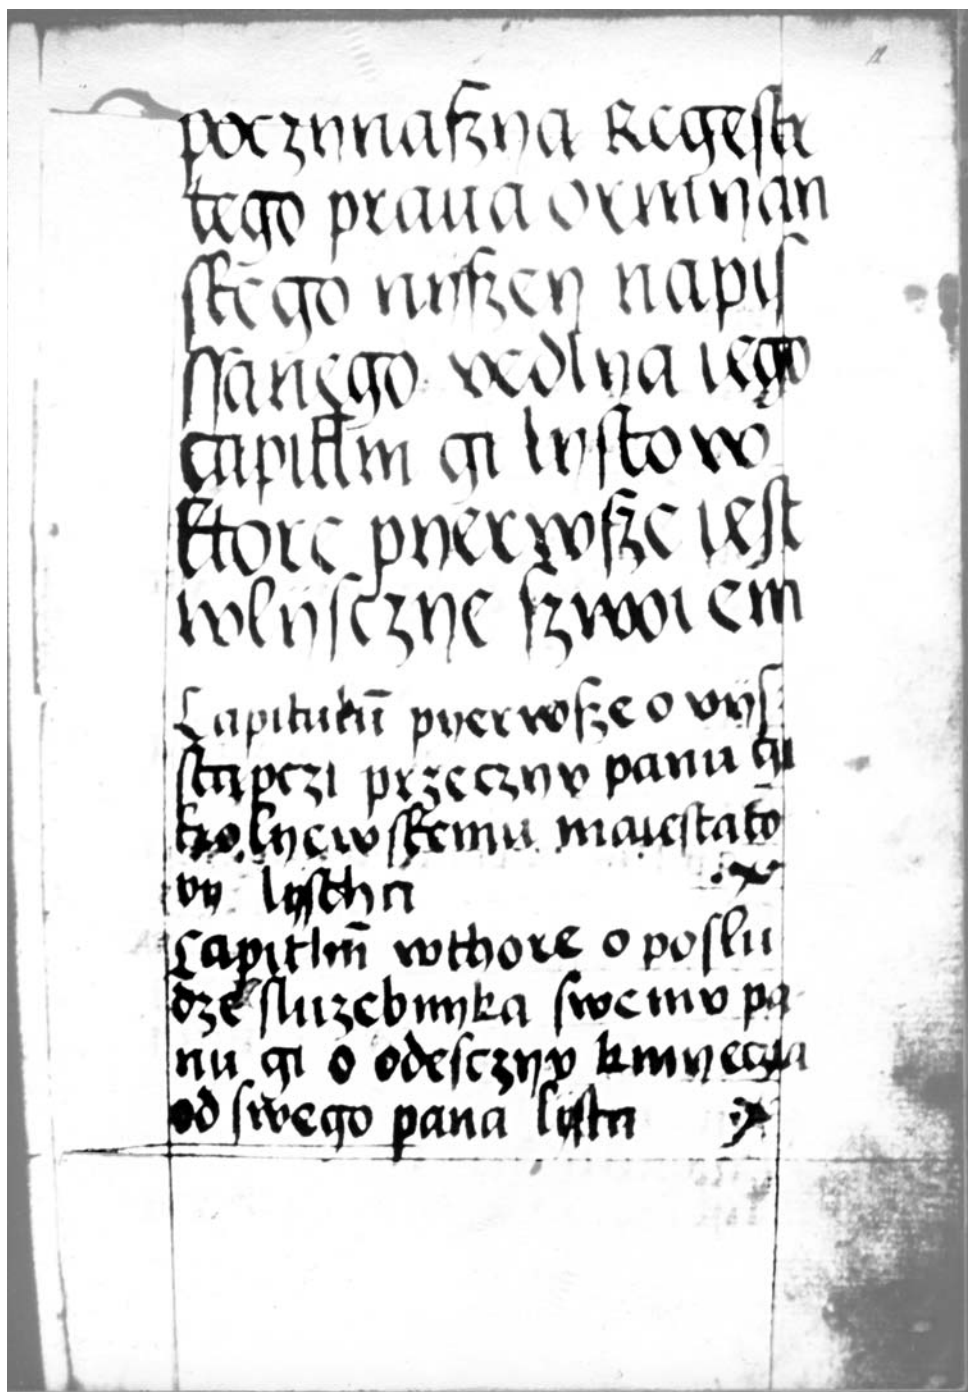 poczynaſzya Regeſtr
tego prawa ormyan
ſkego nyſzey napiſ
ſſanego vedlya iego
Capitlm gi lyſtow
ktore pyerwſze ieſt
wlyſczye ſzwoiem
Capitulū pyerwſze o vyſ
ſtąpczi przeczyv panu gi
krolyewſkemu maieſtato
vy lyſtha x
Capitlm̄ wthore o poſlu
dze ſluzebnyka ſwemv pa
nu gi o odeſczyv kmyecza
od ſwego pana lyſta x